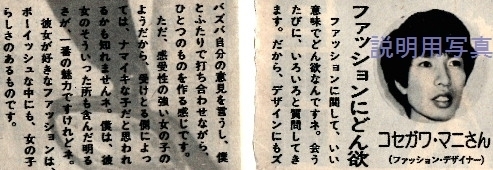 説明用写真
ファッションにどん欲
コセガワ・マニさん
(ファッション・デザイナー)
ファッションに関して、いい
意味でどん欲なんですネ。会う
たびに、いろいろと質問してき
ます。だから、デザインにもズ
バズバ自分の意見を言うし、僕
とふたりで打ち合わせながら、
ひとつのものを作る感じです。
ただ、感受性の強い女の子の
ようだから、受けとる側によっ
ては、ナマイキな子だと思われ
るかも知れませんネ。僕は、彼
女のそういった所も含んだ明る
さが、一番の魅力ですけれどネ。
彼女が好きなファッションは、
ボーイッシュな中にも、女の子
らしさのあるものです。